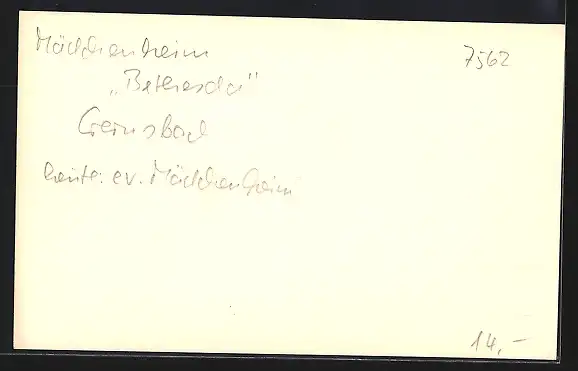 Mädchenheim
7562
„Bethesda"
Gernsbach
heute: ev. Mädchenheim
14,-